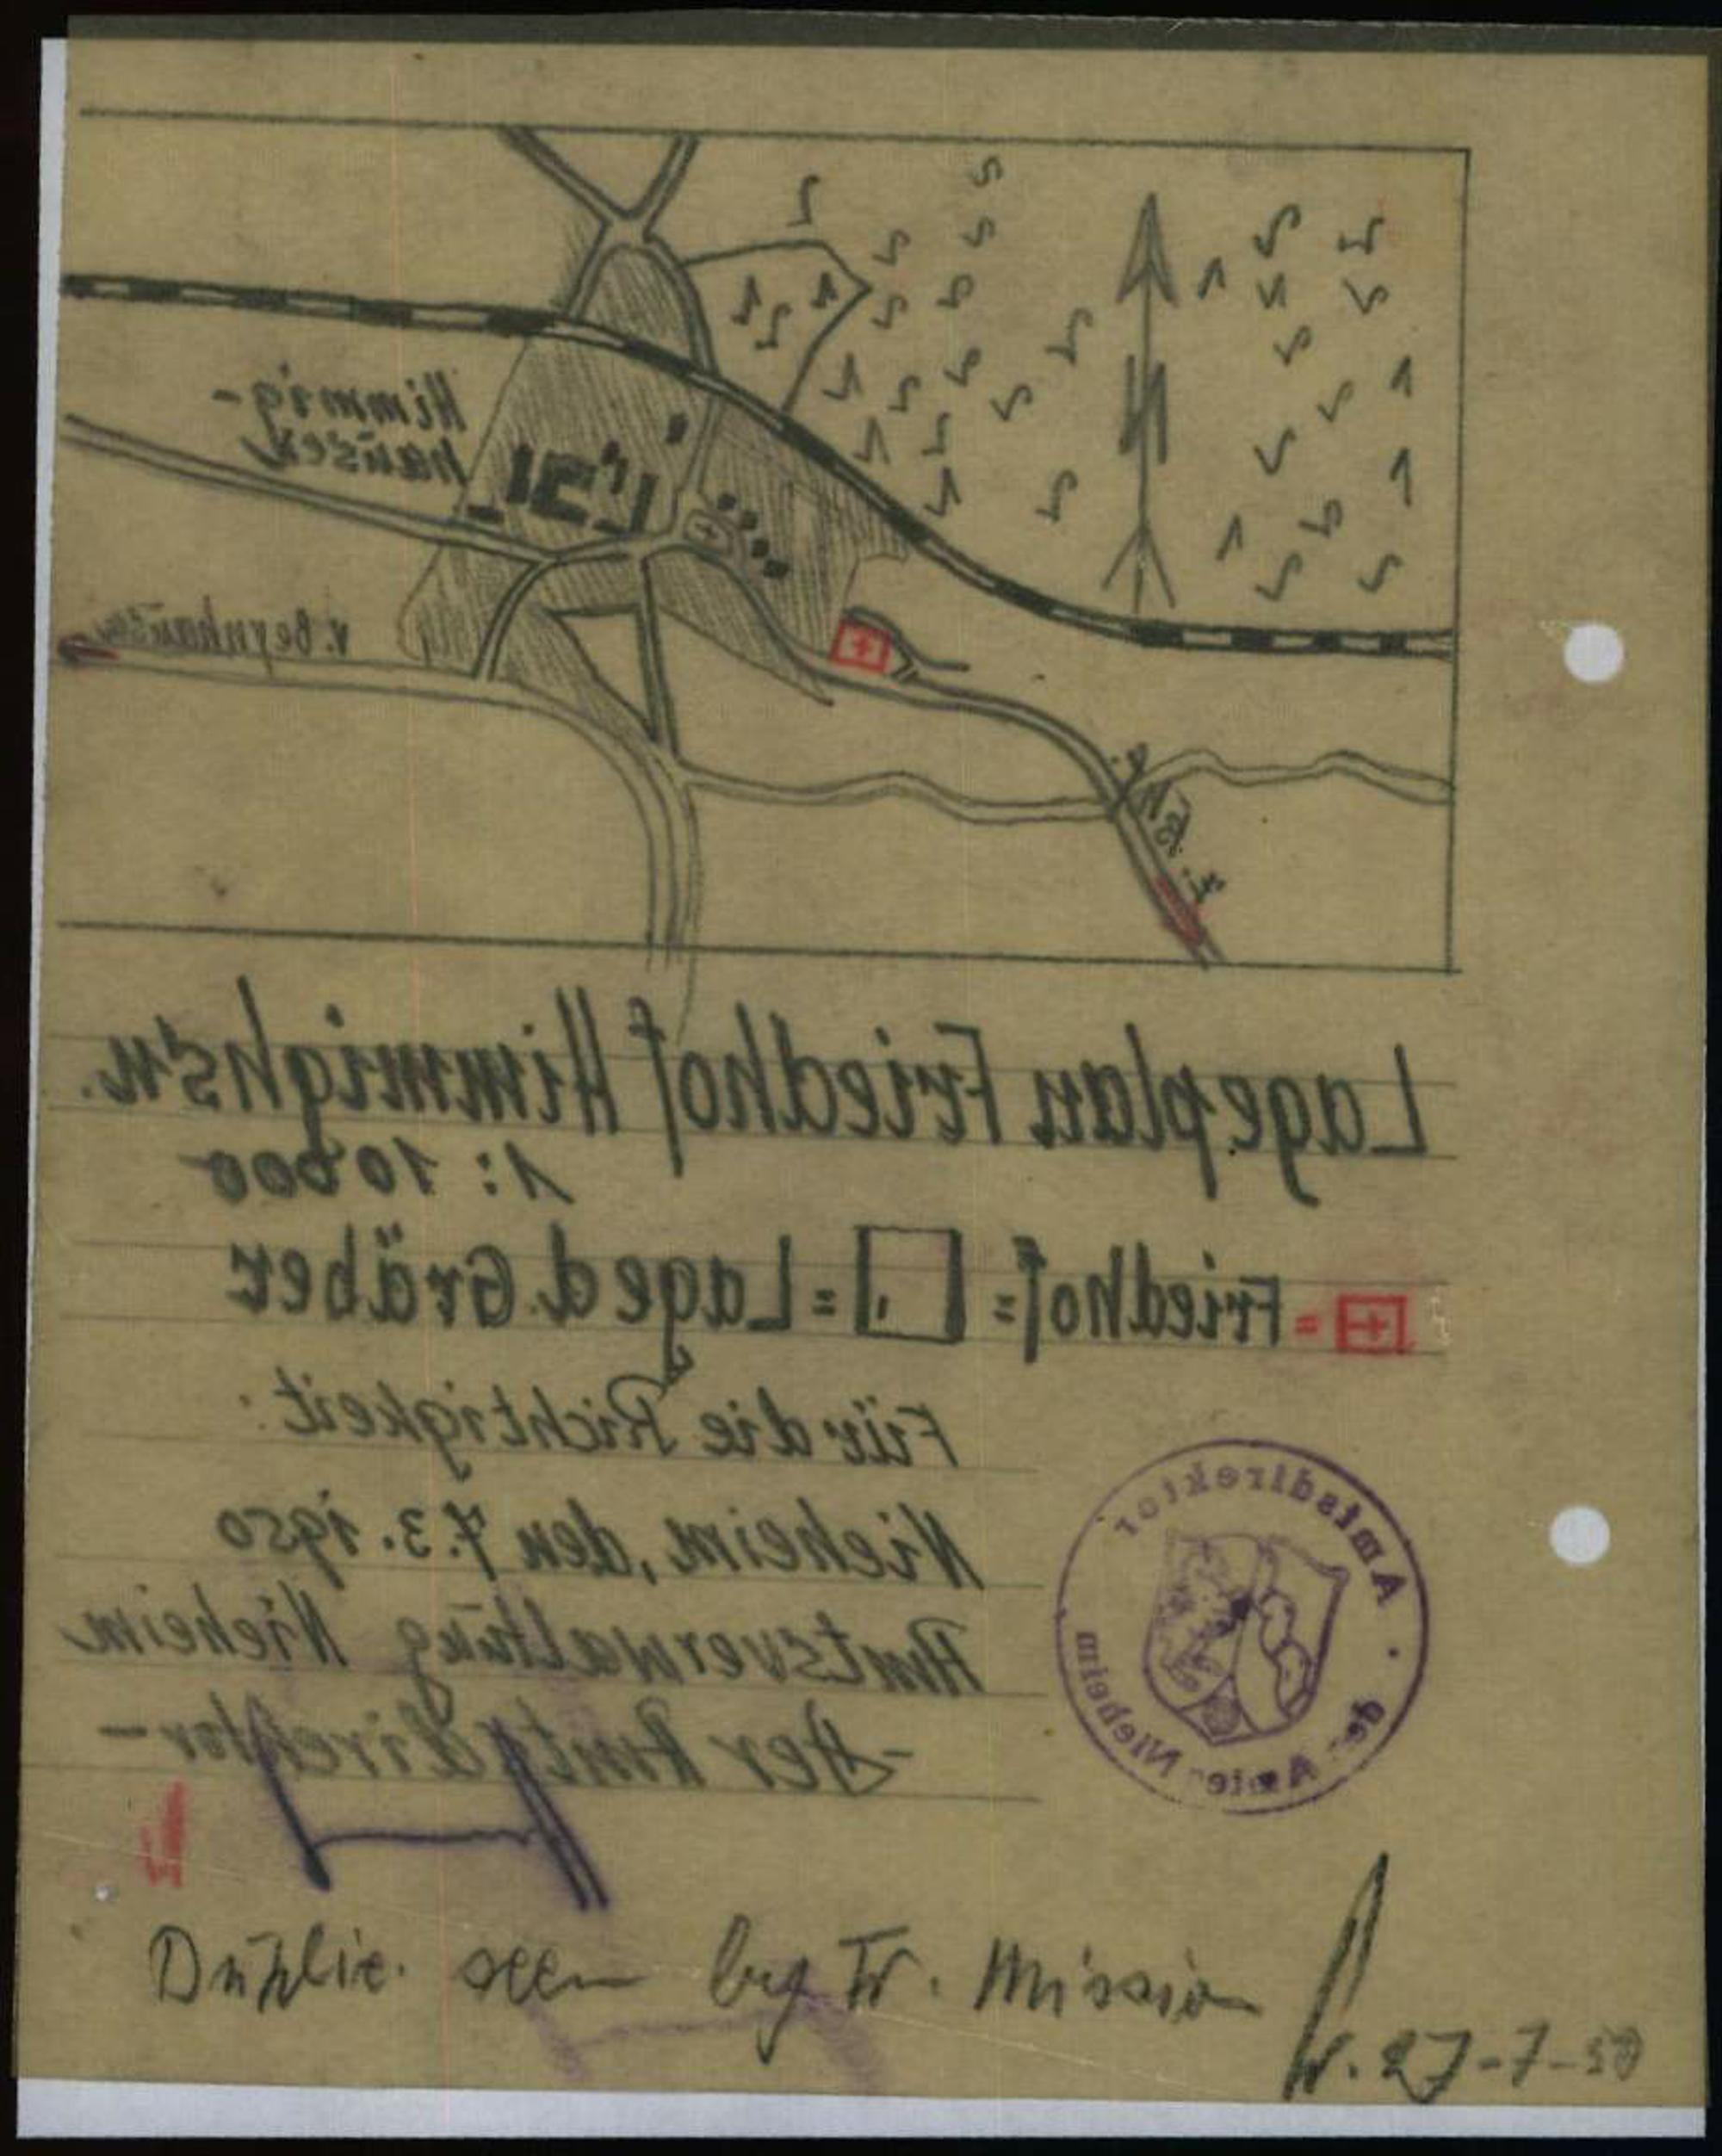 Himmig-
hausen
v. Beynhausen
N
Lageplan Friedhof Himmighs'n.
1:10000
= Friedhof = = Lage d. Gräber
Für die Richtigkeit:
Nieheim, den 7.3.1950
Amtsverwaltung Nieheim
- Der Amtsdirektor -
Amtsdirektor
des Amtes Nieheim
Duplic. seen by Fr. Mission
27-7-50